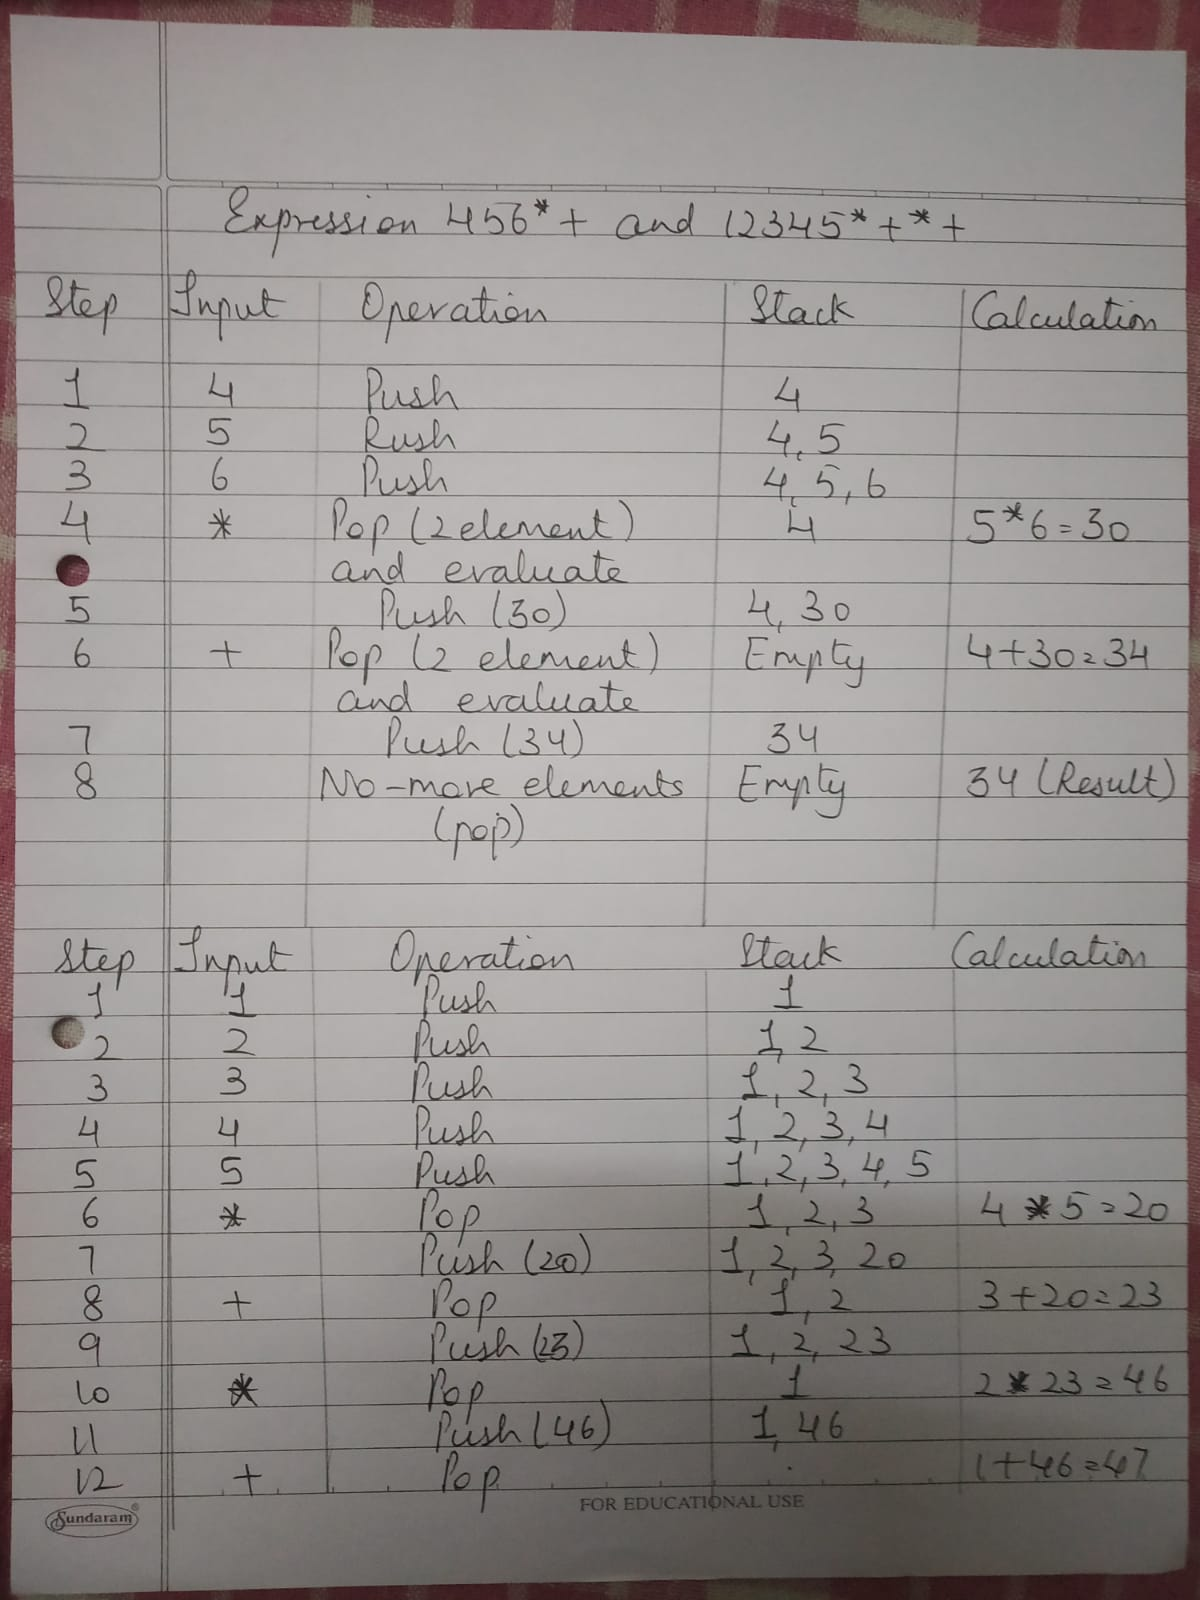 Expression 456*+ and 12345*+*+
Step Input Operation Stack Calculation
1 4 Push 4
2 5 Push 4, 5
3 6 Push 4, 5, 6
4 * Pop (2 element) 4 5*6=30
and evaluate
5 Push (30) 4, 30
6 + Pop (2 element) Empty 4+30=34
and evaluate
7 Push (34) 34
8 No-more elements Empty 34 (Result)
(pop)
Step Input Operation Stack Calculation
1 1 Push 1
2 2 Push 1, 2
3 3 Push 1, 2, 3
4 4 Push 1, 2, 3, 4
5 5 Push 1, 2, 3, 4, 5
6 * Pop 1, 2, 3 4 * 5 = 20
7 Push (20) 1, 2, 3, 20
8 + Pop 1, 2 3+20=23
9 Push (23) 1, 2, 23
10 * Pop 1 2 * 23 = 46
11 Push (46) 1, 46
12 + Pop 1+46=47
Sundaram® FOR EDUCATIONAL USE